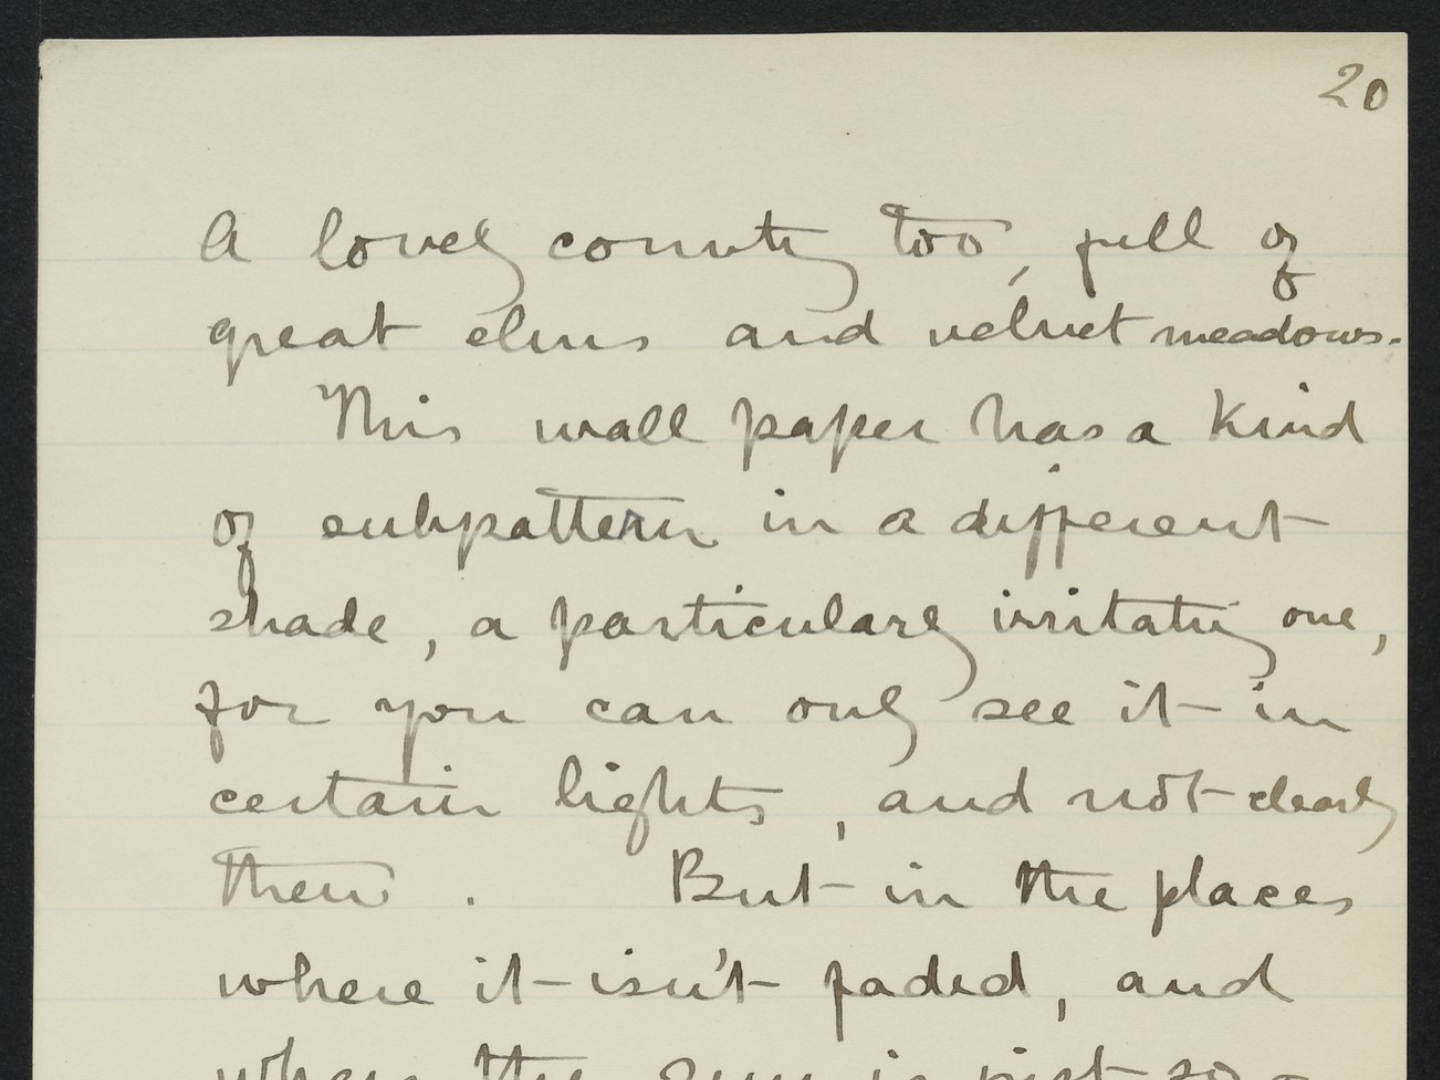 20
A lovely country too, full of
great elms and velvet meadows.
This wall paper has a kind
of subpattern in a different
shade, a particularly irritating one,
for you can only see it in
certain lights, and not clearly
then. But in the places
where it isn't faded, and
where the sun is just so -